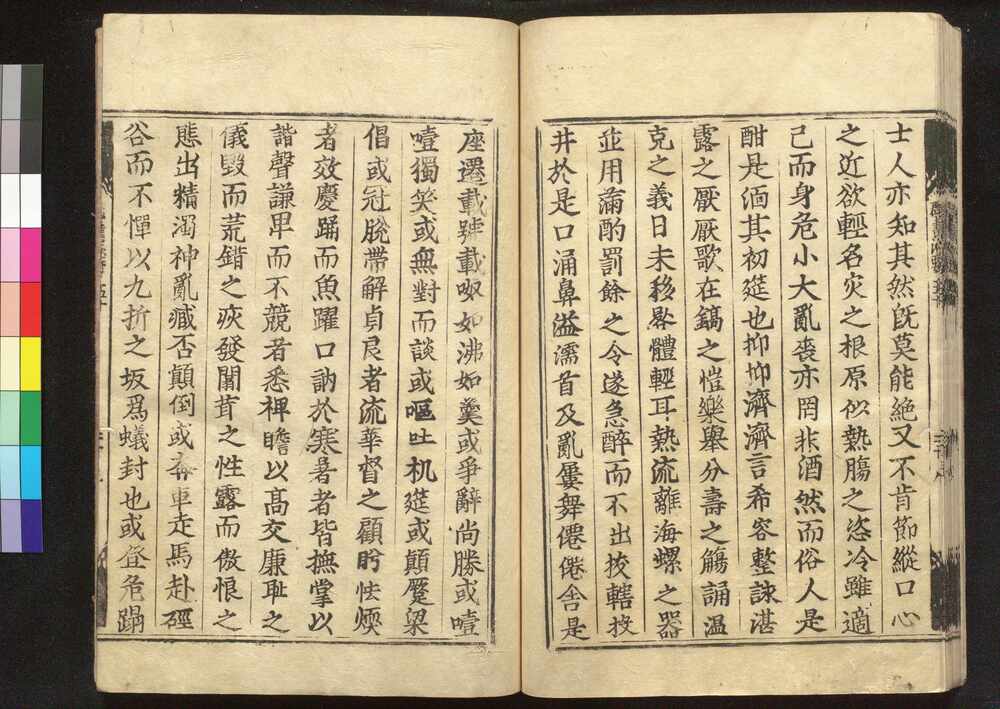 士人亦知其然旣莫能絕又不肯節縱口心
之近欲輕名灾之根原似熱腸之恣冷雖適
己而身危小大亂喪亦罔非酒然而俗人是
酣是湎其初筵也抑抑濟濟言希容整詠湛
露之厭厭歌在鎬之愷樂擧分壽之觴誦温
克之義日未移晷體輕耳熱流離海螺之器
並用滿酌罰餘之令遂急醉而不出拔轄投
井於是口涌鼻溢濡首及亂屢舞僊僊舍是
座遷載號載呶如沸如羹或爭辭尙勝或噎
噎獨笑或無對而談或嘔吐机筵或顚蹷梁
倡或冠脫帶解貞良者流華督之顧眄怯愞
者效慶踊而魚躍口訥於寒暑者皆撫掌以
諧聲謙卑而不競者悉裨瞻以高交廉耻之
儀毁而荒錯之疾發闒茸之性露而傲恨之
態出精濁神亂臧否顚倒或奔車走馬赴硜
谷而不憚以九折之坂爲蟻封也或登危蹋